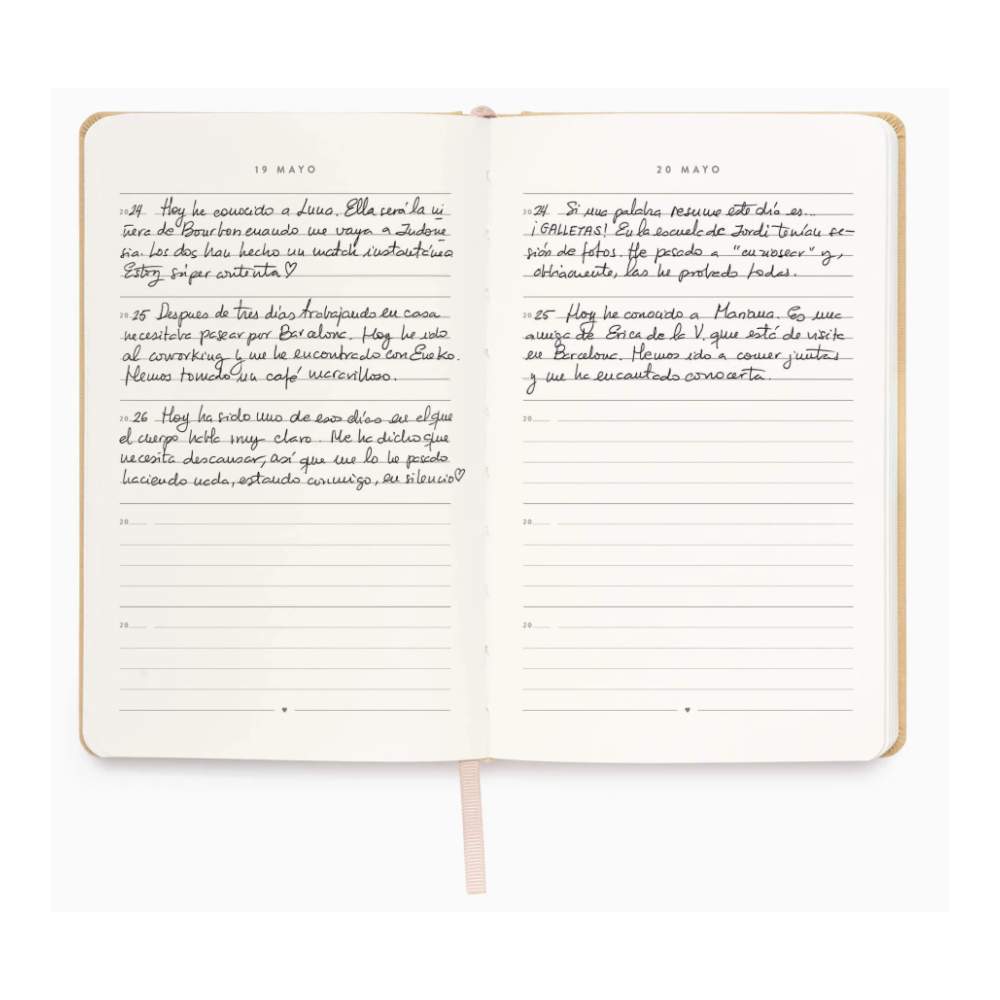 19 MAYO
2024 Hoy he conocido a Luna. Ella será la ni
ñera de Bourbon cuando me vaya a Indone
sia. Los dos han hecho un match instantáneo
Estoy súper contenta ♡
2025 Despues de tres días trabajando en casa
necesitaba pasear por Barcelona. Hoy he ido
al coworking y me he encontrado con Eneko.
Hemos tomado un café maravilloso.
2026 Hoy ha sido uno de esos días en el que
el cuerpo habla muy claro. Me ha dicho que
necesita descansar, así que me lo he pasado
haciendo nada, estando conmigo, en silencio ♡
20
20
20 MAYO
2024 Si una palabra resume este día es...
¡GALLETAS! En la escuela de Jordi tenían se-
sión de fotos. He pasado a "curiosear" y,
obviamente, las he probado todas.
2025 Hoy he conocido a Mariana. Es una
amiga de Erica de la V. que está de visita
en Barcelona. Hemos ido a comer juntas
y me ha encantado conocerla.
20
20
20